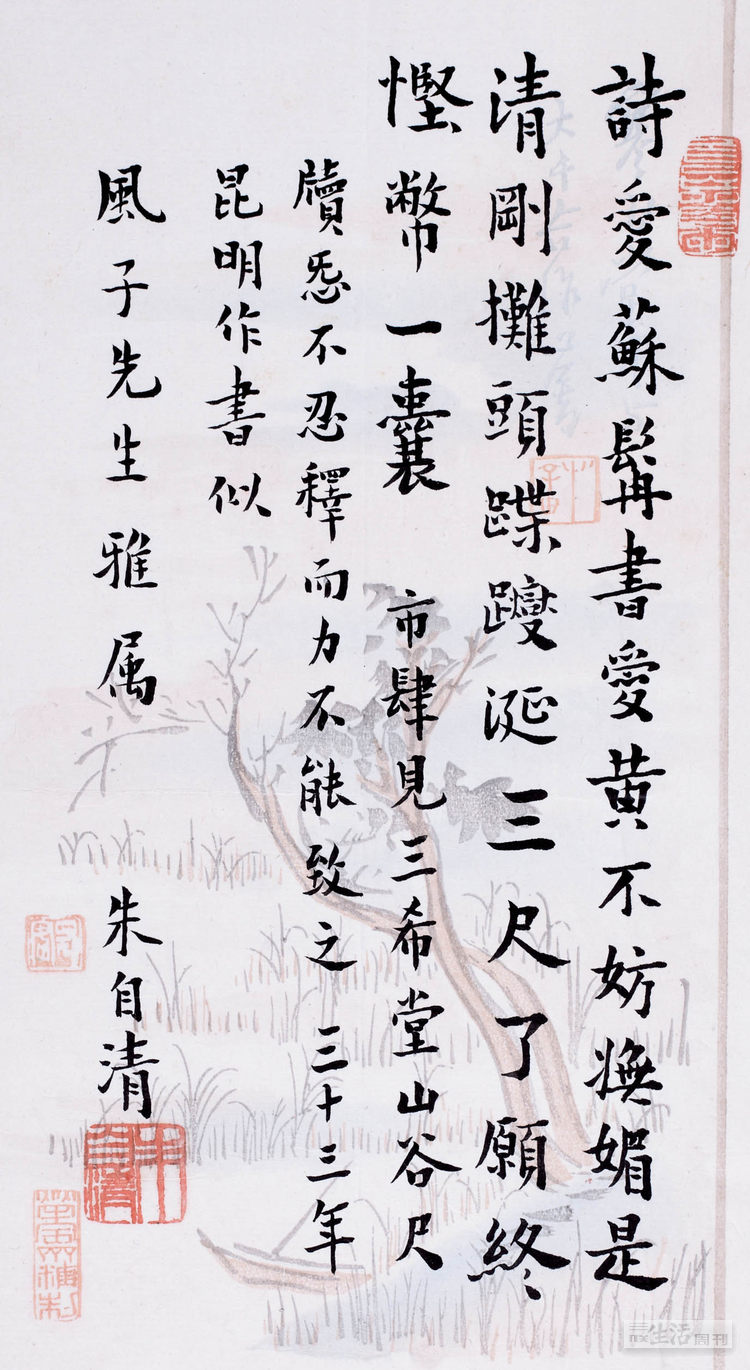 詩愛蘇髯書愛黃不妨嫵媚是
清剛攤頭蹀躞涎三尺了願終
慳幣一囊 市肆見三希堂山谷尺
牘忢不忍釋而力不能致之 三十三年
昆明作書似
風子先生雅属 朱自清
朱自清
三联生活周刊